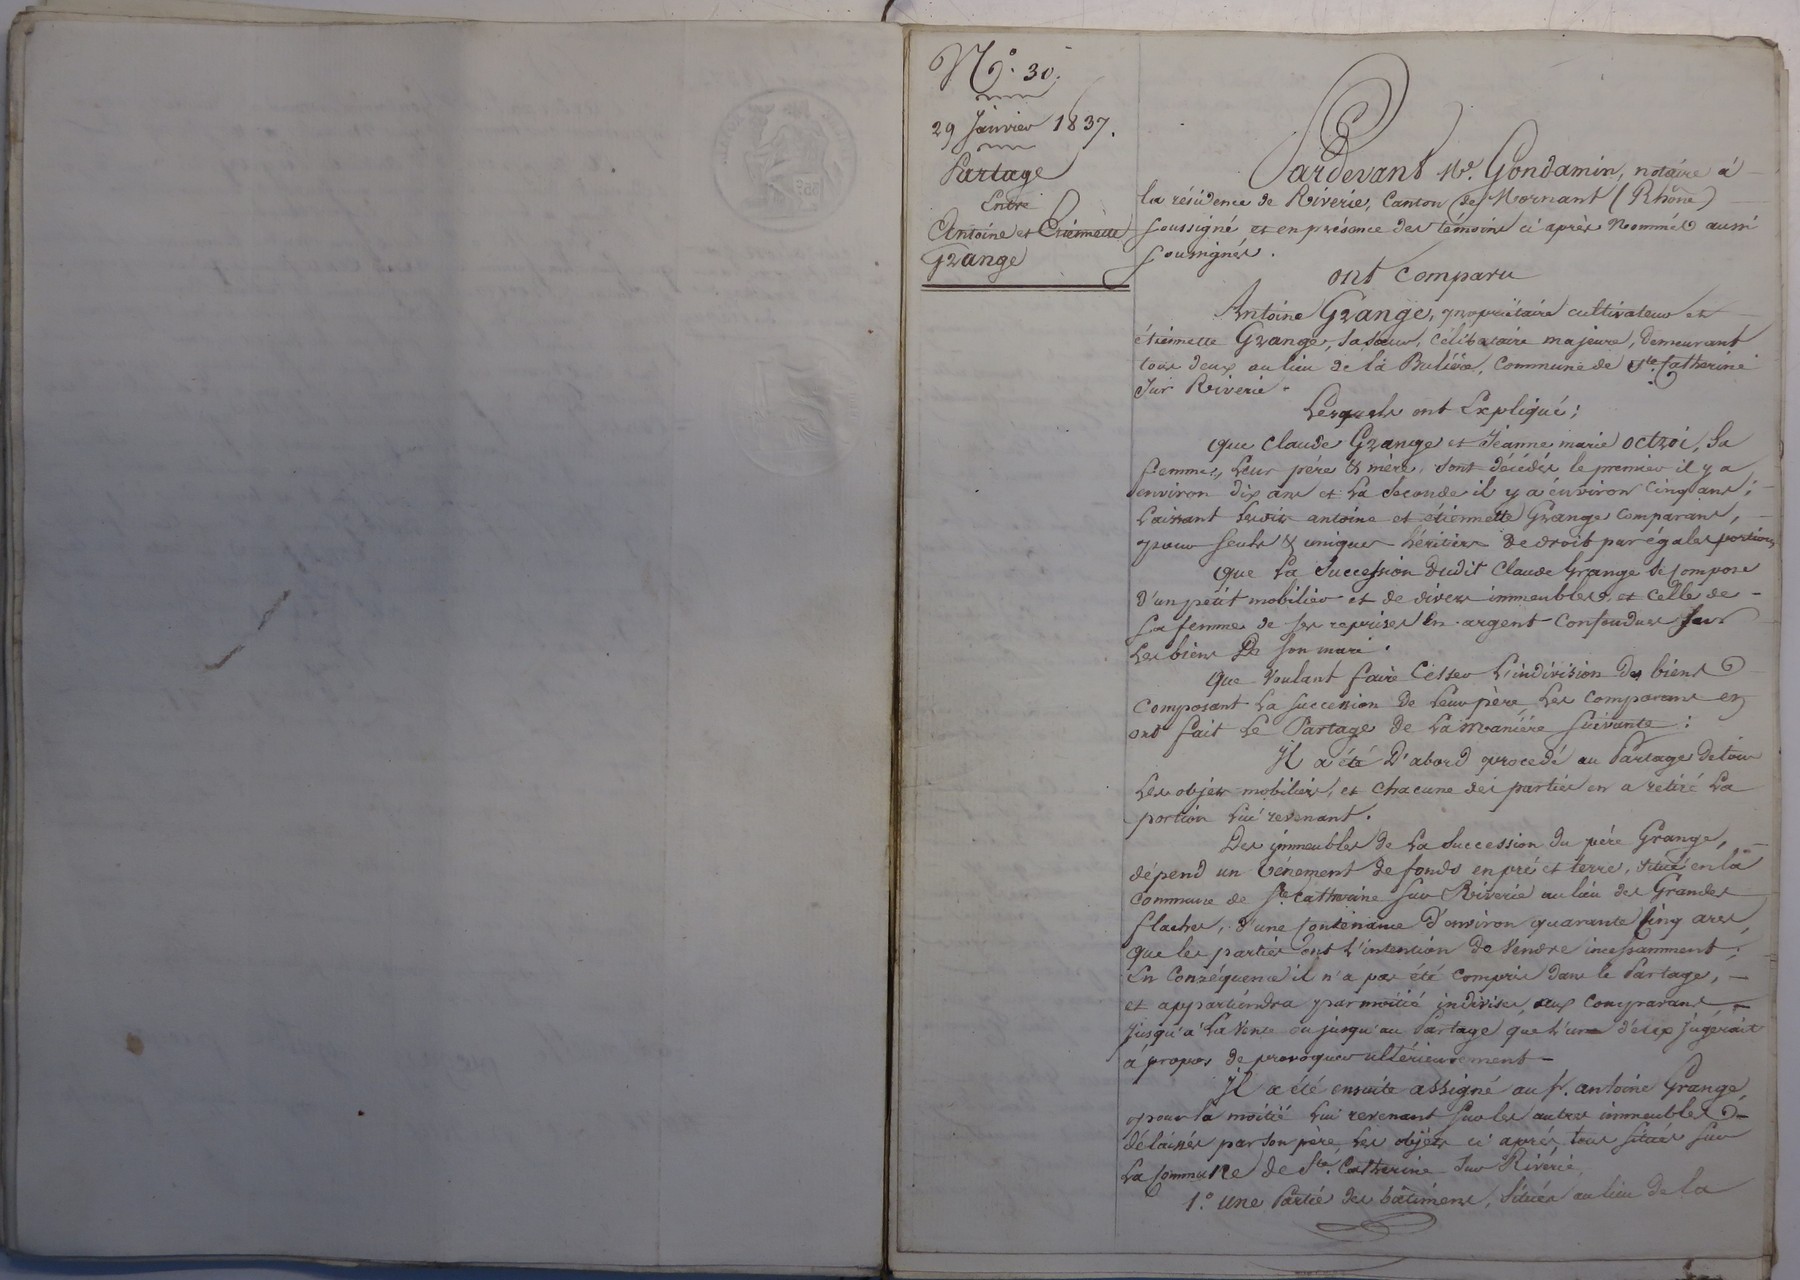 N.° 30.
29 Janvier 1837.
Partage
Entre
Antoine et Etiennette
Grange
Pardevant Me. Gondamin, notaire à
la résidence de Riverie, Canton de Mornant (Rhône)
soussigné et en présence des témoins ci après nommés aussi
soussignés.
ont Comparu
Antoine Grange, propriétaire cultivateur et
étiennette Grange, sa sœur, célibataire majeure, demeurant
tous deux au lieu de la, Commune de Ste. Catherine
sur Riverie.
Lesquels ont Expliqué;
que Claude Grange et Jeanne marie octroi, sa
femme, leur père & mère, sont décédés le premier il y a
environ dix ans et la seconde il y a environ cinq ans;
laissant lesdits antoine et étiennette Grange comparans,
pour seuls & uniques héritiers de droit par égales portions
que la succession dudit Claude Grange se compose
d'un petit mobilier et de divers immeubles, et celle de
sa femme de ses reprises en argent confondues sur
les biens de son mari.
que voulant faire cesser l'indivision des biens
composant la succession de leur père, les comparans en
ont fait le Partage de la manière suivante:
Il a été d'abord procédé au Partage de tous
les objets mobiliers, et chacune des parties en a retiré la
portion lui revenant.
Des immeubles de la succession du père Grange,
dépend un ténement de fonds en pré et terre, situé en la
commune de Ste Catherine sur Riverie au lieu des Grandes
flaches, d'une contenance d'environ quarante cinq ares,
que les parties ont l'intention de vendre incessamment;
En conséquence il n'a pas été compris dans le Partage,
et appartiendra par moitié indivise, aux comparans
jusqu'à la vente ou jusqu'au Partage que l'un d'eux jugerait
à propos de provoquer ultérieurement
Il a été ensuite assigné au sr. antoine Grange,
pour la moitié lui revenant sur les autres immeubles
délaissés par son père, les objets ci après, tous situés sur
la commune de Ste. Catherine sur Riverie
1.° une Partie des bâtimens, située au lieu de la